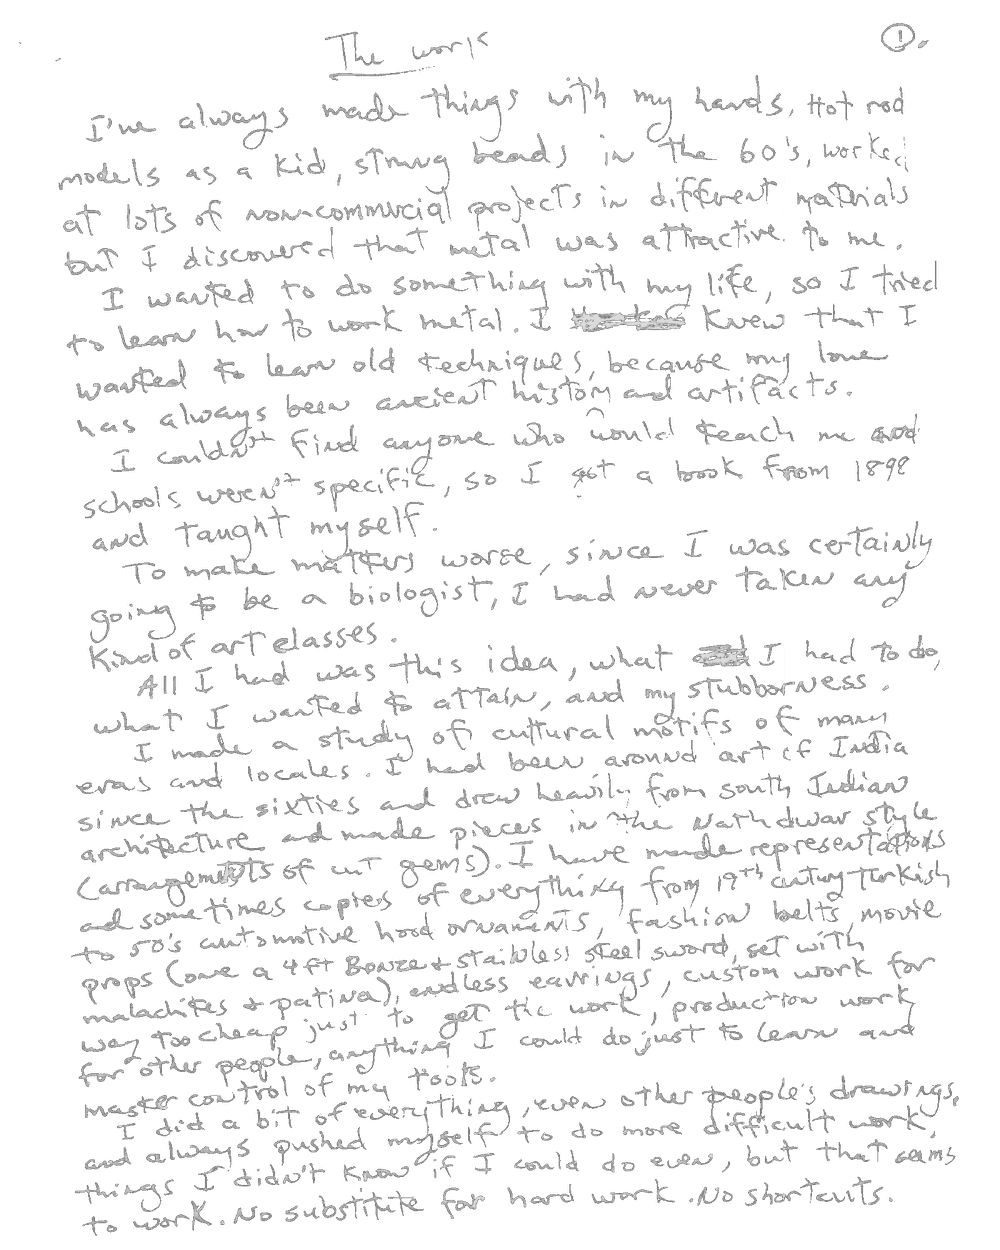 The work
1.
I've always made things with my hands, Hot rod
models as a kid, strung beads in the 60's, worked
at lots of non-commercial projects in different materials
but I discovered that metal was attractive to me.
I wanted to do something with my life, so I tried
to learn how to work metal. I knew that I
wanted to learn old techniques, because my love
has always been ancient history and artifacts.
I couldn't find anyone who would teach me and
schools weren't specific, so I got a book from 1898
and taught myself.
To make matters worse, since I was certainly
going to be a biologist, I had never taken any
kind of art classes.
All I had was this idea, what I had to do,
what I wanted to attain, and my stubborness.
I made a study of cultural motifs of many
eras and locales. I had been around art of India
since the sixties and drew heavily from South Indian
architecture and made pieces in the Nathdwar style
(arrangements of cut gems). I have made representations
and sometimes copies of everything from 19th century Turkish
to 50's automotive hood ornaments, fashion belts, movie
props (one a 4ft Bonze + stainless steel sword, set with
malachites + patina), endless earrings, custom work for
way too cheap just to get the work, production work
for other people, anything I could do just to learn and
master control of my tools.
I did a bit of everything, even other people's drawings,
and always pushed myself to do more difficult work,
things I didn't know if I could do even, but that seems
to work. No substitute for hard work. No shortcuts.